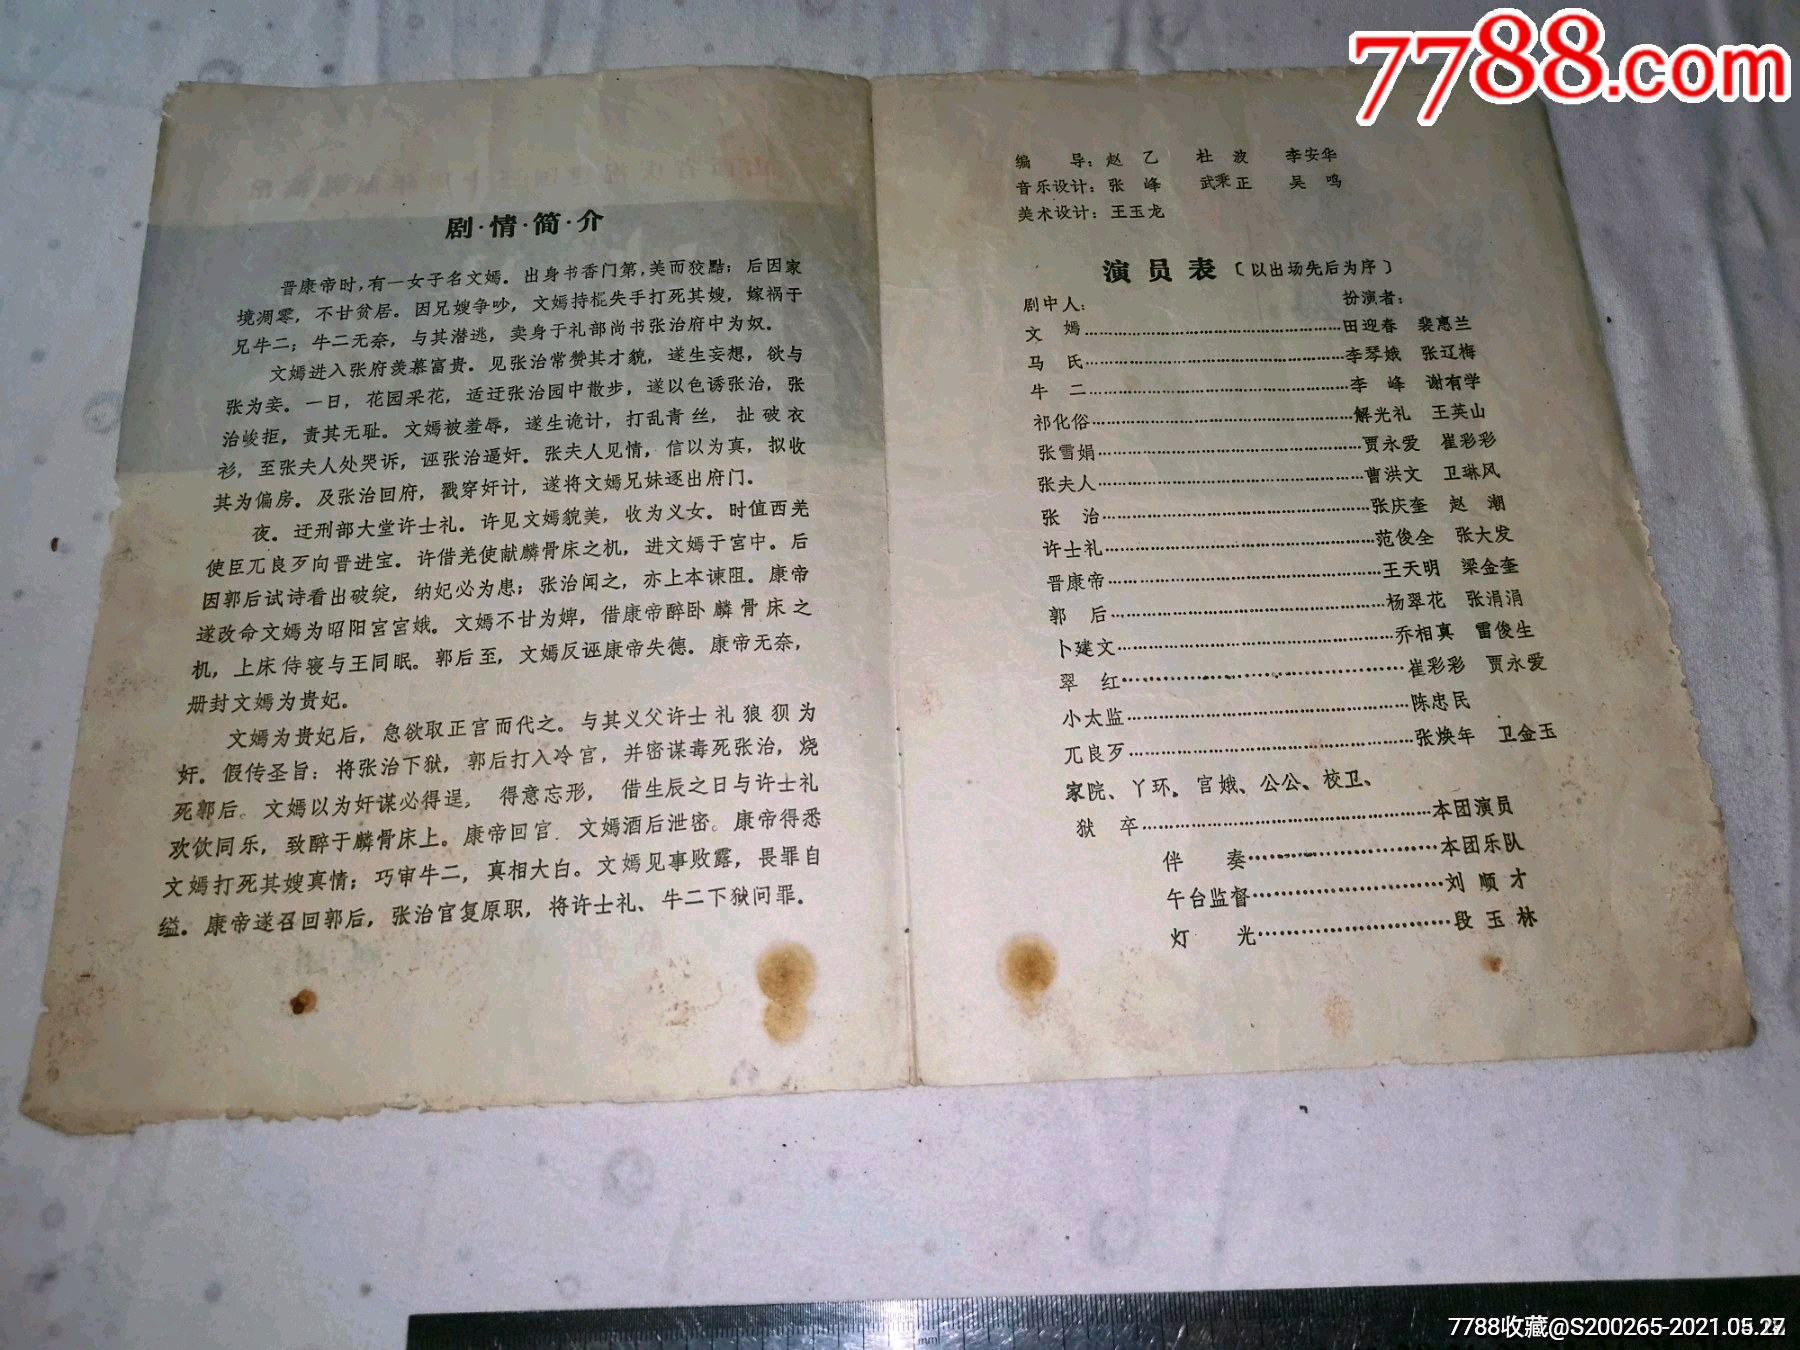 7788.com
剧·情·简·介
晋康帝时，有一女子名文嫣。出身书香门第，美而狡黠；后因家
境凋零，不甘贫居。因兄嫂争吵，文嫣持棍失手打死其嫂，嫁祸于
兄牛二；牛二无奈，与其潜逃，卖身于礼部尚书张治府中为奴。
文嫣进入张府羡慕富贵。见张治常赞其才貌，遂生妄想，欲与
张为妾。一日，花园采花，适迂张治园中散步，遂以色诱张治，张
治峻拒，责其无耻。文嫣被羞辱，遂生诡计，打乱青丝，扯破衣
衫，至张夫人处哭诉，诬张治逼奸。张夫人见情，信以为真，拟收
其为偏房。及张治回府，戳穿奸计，遂将文嫣兄妹逐出府门。
夜。迂刑部大堂许士礼。许见文嫣貌美，收为义女。时值西羌
使臣兀良歹向晋进宝。许借羌使献麟骨床之机，进文嫣于宫中。后
因郭后试诗看出破绽，纳妃必为患；张治闻之，亦上本谏阻。康帝
遂改命文嫣为昭阳宫宫娥。文嫣不甘为婢，借康帝醉卧麟骨床之
机，上床侍寝与王同眠。郭后至，文嫣反诬康帝失德。康帝无奈，
册封文嫣为贵妃。
文嫣为贵妃后，急欲取正宫而代之。与其义父许士礼狼狈为
奸。假传圣旨：将张治下狱，郭后打入冷宫，并密谋毒死张治，烧
死郭后。文嫣以为奸谋必得逞，得意忘形，借生辰之日与许士礼
欢饮同乐，致醉于麟骨床上。康帝回宫 文嫣酒后泄密。康帝得悉
文嫣打死其嫂真情；巧审牛二，真相大白。文嫣见事败露，畏罪自
缢。康帝遂召回郭后，张治官复原职，将许士礼、牛二下狱问罪。
编　　导：赵　乙　杜　波　李安华
音乐设计：张　峰　武秉正　吴　鸣
美术设计：王玉龙
演员表〔以出场先后为序〕
剧中人：　扮演者：
文　嫣……田迎春　裴惠兰
马　氏……李琴娥　张辽梅
牛　二……李　峰　谢有学
祁化俗……解光礼　王英山
张雪娟……贾永爱　崔彩彩
张夫人……曹洪文　卫琳风
张　治……张庆奎　赵　潮
许士礼……范俊全　张大发
晋康帝……王天明　梁金奎
郭　后……杨翠花　张涓涓
卜建文……乔相真　雷俊生
翠　红……崔彩彩　贾永爱
小太监……陈忠民
兀良歹……张焕年　卫金玉
家院、丫环。宫娥、公公、校卫、
狱　卒……本团演员
伴　　奏……本团乐队
午台监督……刘顺才
灯　　光……段玉林
7788收藏@S200265-2021.05.27